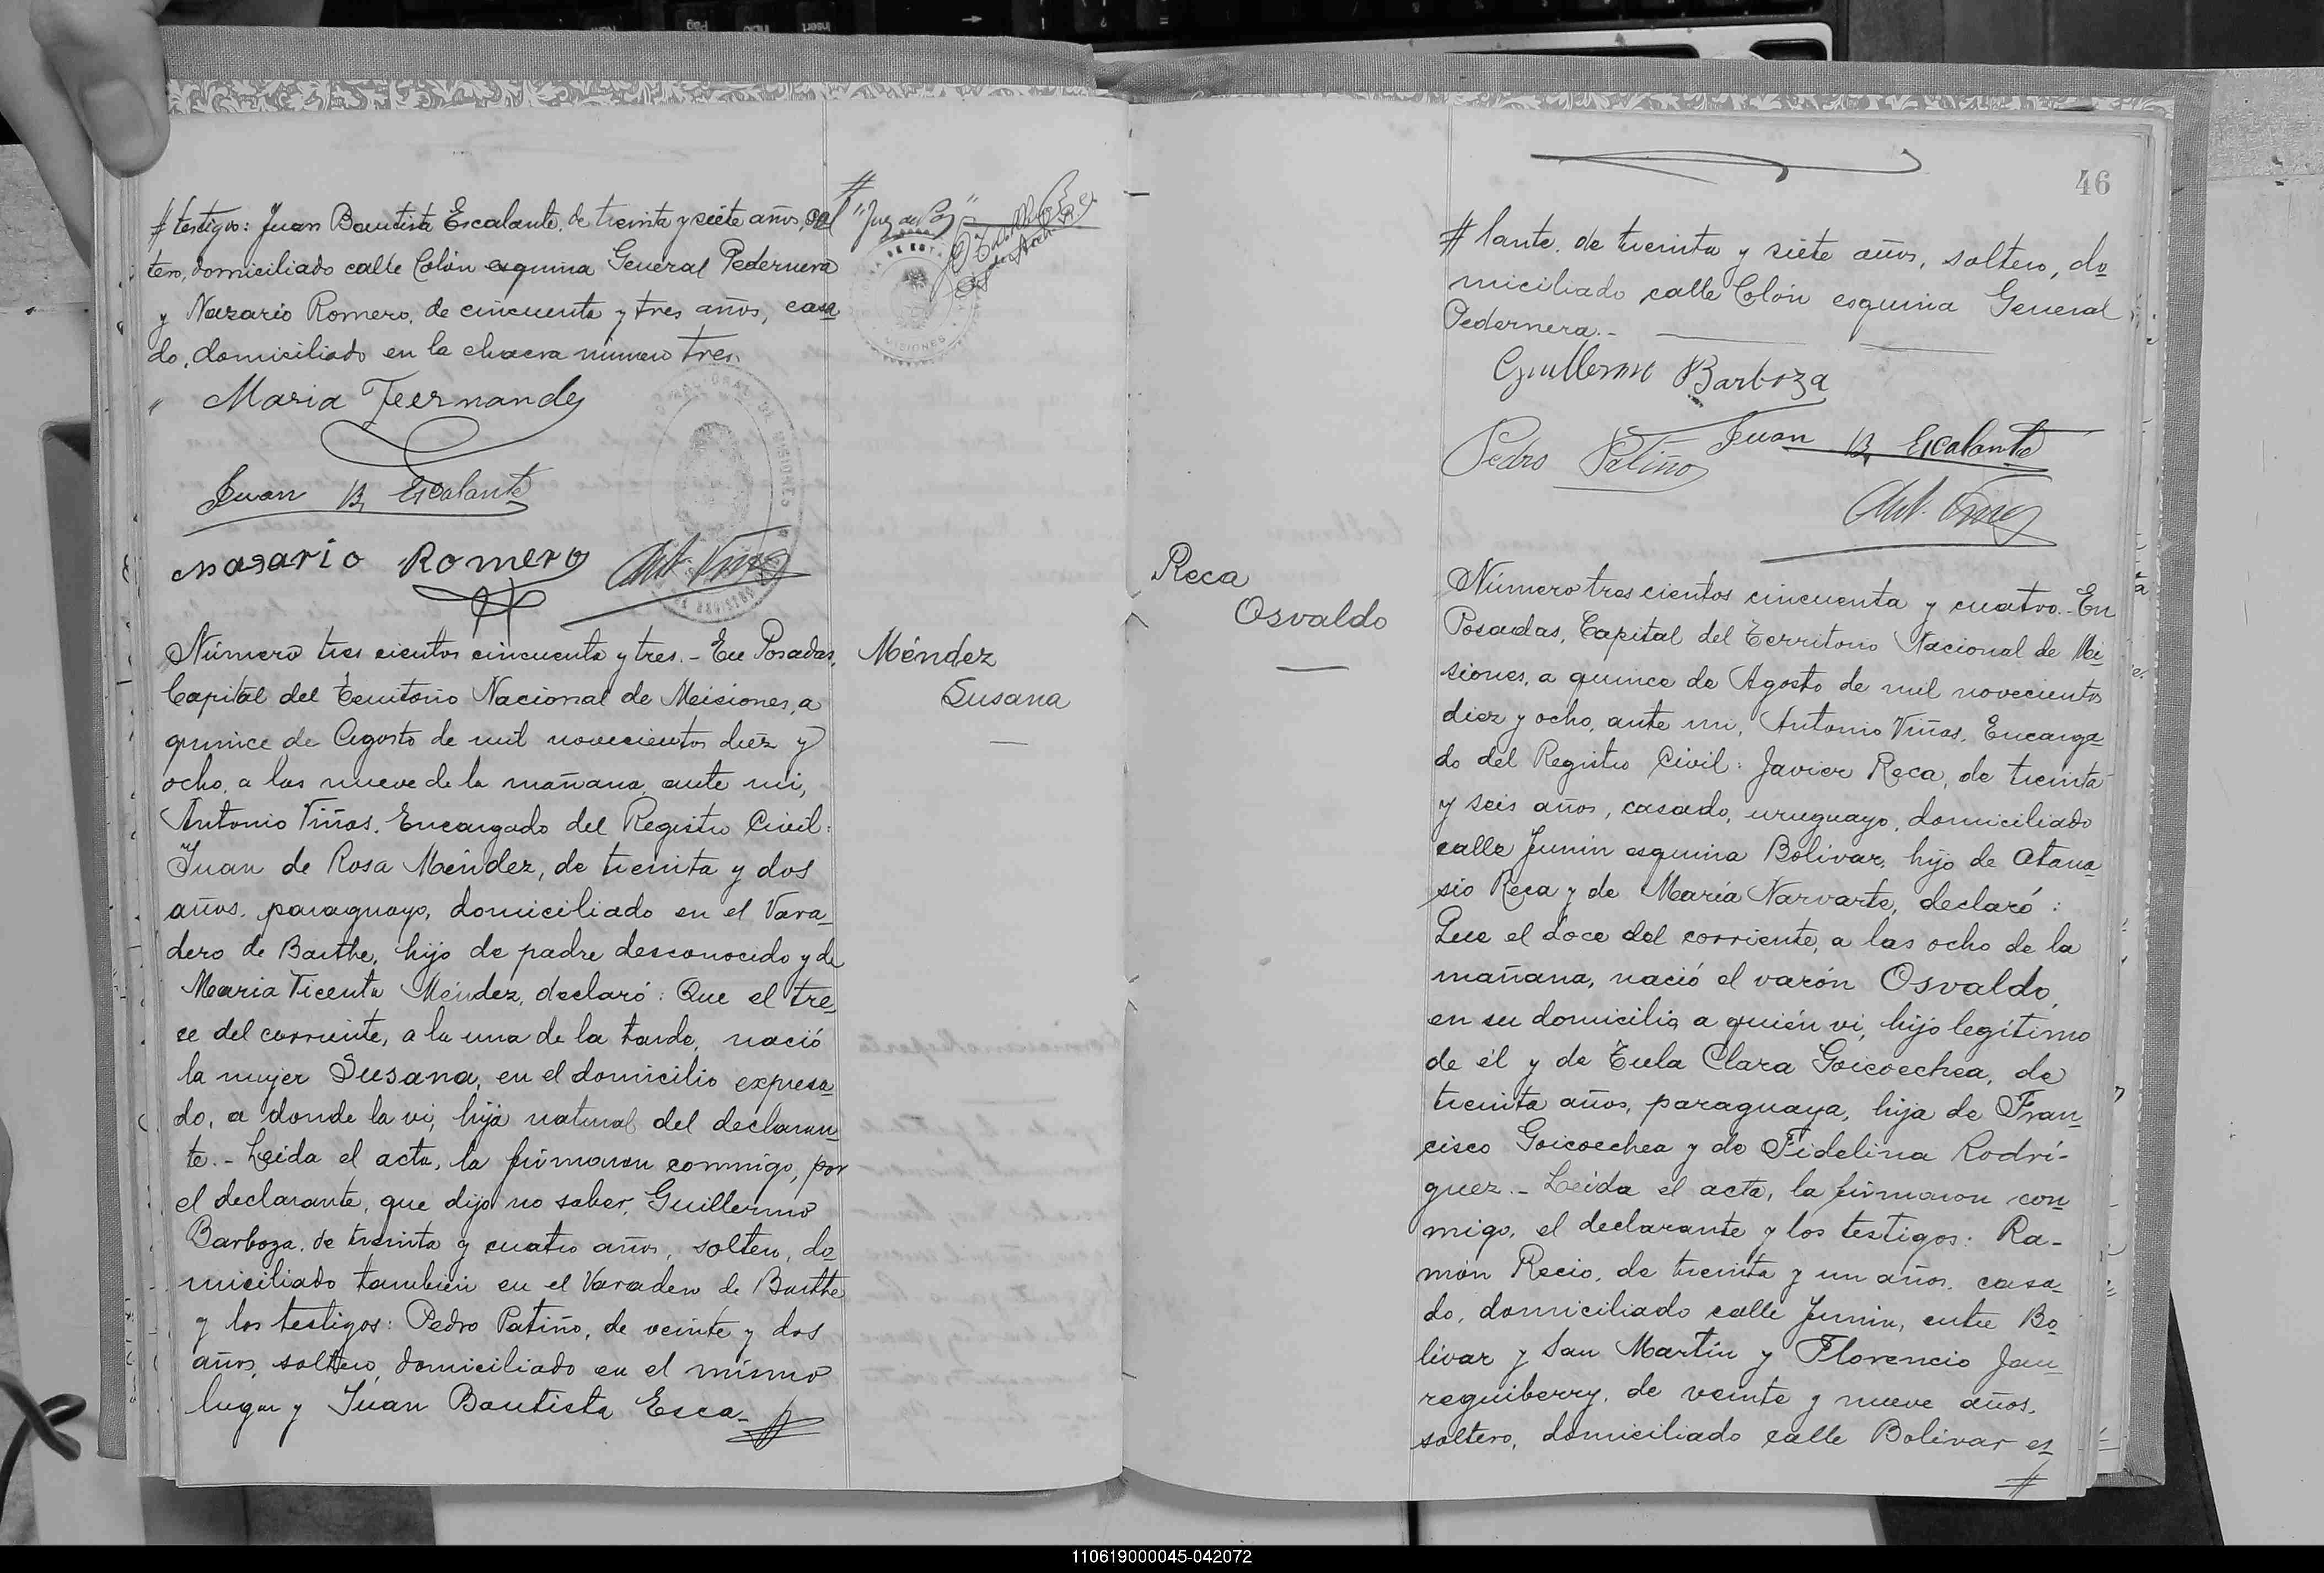 # testigos: Juan Bautista Escalante, de treinta y siete años, sol
tero, domiciliado calle Colón esquina General Pedernera
y Nazario Romero, de cincuenta y tres años, casa
do, domiciliado en la chacra número tres.
Maria Fernandez
Juan B. Escalante
Nasario Romero Ant. Viñas
Número tres cientos cincuenta y tres.- En Posadas,
Capital del Territorio Nacional de Misiones, a
quince de Agosto de mil novecientos diez y
ocho, a las nueve de la mañana, ante mi,
Antonio Viñas, Encargado del Registro Civil:
Juan de Rosa Méndez, de treinta y dos
años, paraguayo, domiciliado en el Vara
dero de Barthe, hijo de padre desconocido y de
Maria Vicenta Méndez, declaró: Que el tre
ce del corriente, a la una de la tarde, nació
la mujer Susana, en el domicilio expresa
do, a donde la vi, hija natural del declaran
te.- Leida el acta, la firmaron conmigo, por
el declarante, que dijo no saber, Guillermo
Barboza, de treinta y cuatro años, soltero, do
miciliado también en el Varadero de Barthe
y los testigos: Pedro Patiño, de veinte y dos
años, soltero, domiciliado en el mismo
lugar y Juan Bautista Esca- #
# "Juez de Paz"
MISIONES
Méndez
Susana
46
# lante, de treinta y siete años, soltero, do
miciliado calle Colón esquina General
Pedernera.-
Guillermo Barboza
Pedro Patiño Juan B. Escalante
Ant. Viñas
Reca
Osvaldo
Número tres cientos cincuenta y cuatro.- En
Posadas, Capital del Territorio Nacional de Mi
siones, a quince de Agosto de mil novecientos
diez y ocho, ante mi, Antonio Viñas, Encarga
do del Registro Civil: Javier Reca, de treinta
y seis años, casado, uruguayo, domiciliado
calle Junin esquina Bolívar, hijo de Atana
sio Reca y de María Narvarte, declaró:
Que el doce del corriente, a las ocho de la
mañana, nació el varón Osvaldo,
en su domicilio a quién vi, hijo legítimo
de él y de Tula Clara Goicoechea, de
treinta años, paraguaya, hija de Fran
cisco Goicoechea y de Fidelina Rodrí-
guez.- Leida el acta, la firmaron con
migo, el declarante y los testigos: Ra-
món Recio, de treinta y un años, casa
do, domiciliado calle Junin, entre Bo
lívar y San Martín y Florencio Jau
reguiberry, de veinte y nueve años,
soltero, domiciliado calle Bolívar es
#
110619000045-042072